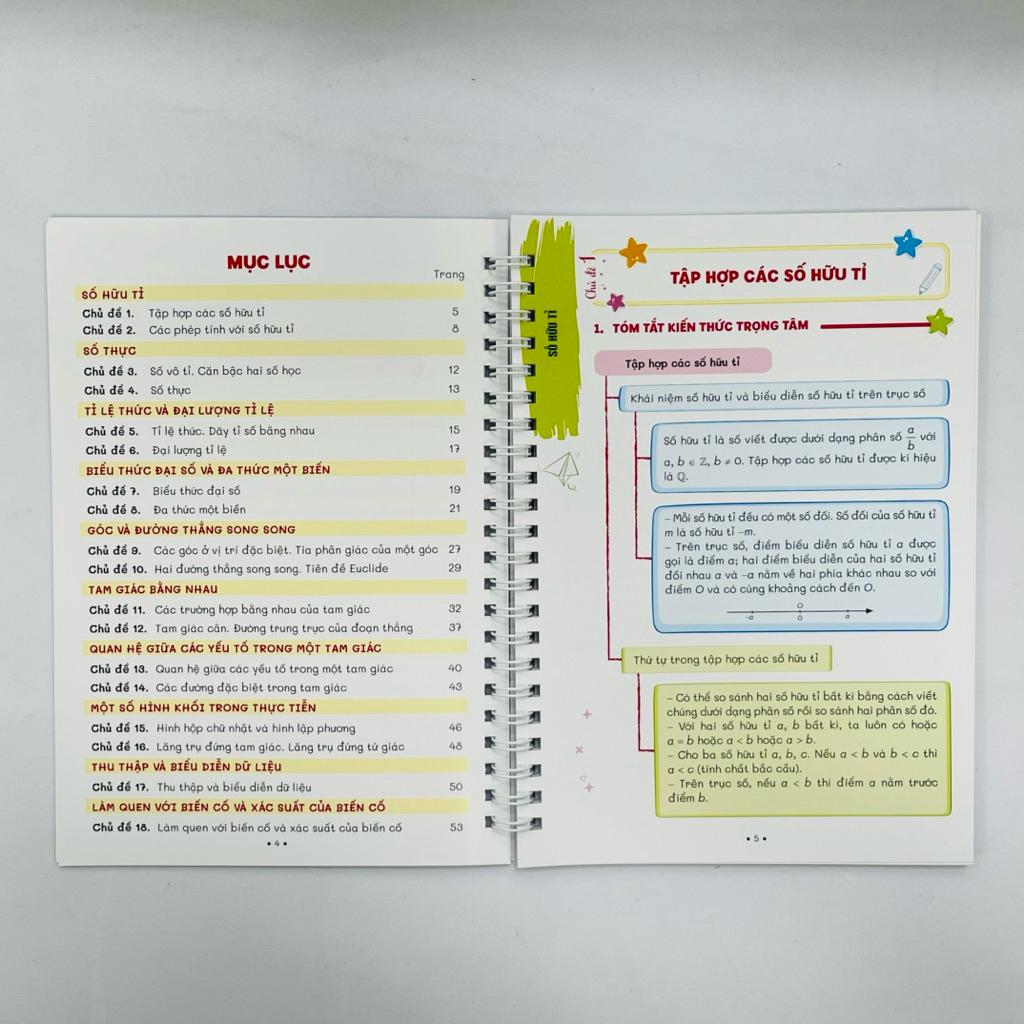 MỤC LỤC
Trang
SỐ HỮU TỈ
Chủ đề 1. Tập hợp các số hữu tỉ 5
Chủ đề 2. Các phép tính với số hữu tỉ 8
SỐ THỰC
Chủ đề 3. Số vô tỉ. Căn bậc hai số học 12
Chủ đề 4. Số thực 13
TỈ LỆ THỨC VÀ ĐẠI LƯỢNG TỈ LỆ
Chủ đề 5. Tỉ lệ thức. Dãy tỉ số bằng nhau 15
Chủ đề 6. Đại lượng tỉ lệ 17
BIỂU THỨC ĐẠI SỐ VÀ ĐA THỨC MỘT BIẾN
Chủ đề 7. Biểu thức đại số 19
Chủ đề 8. Đa thức một biến 21
GÓC VÀ ĐƯỜNG THẲNG SONG SONG
Chủ đề 9. Các góc ở vị trí đặc biệt. Tia phân giác của một góc 27
Chủ đề 10. Hai đường thẳng song song. Tiên đề Euclide 29
TAM GIÁC BẰNG NHAU
Chủ đề 11. Các trường hợp bằng nhau của tam giác 32
Chủ đề 12. Tam giác cân. Đường trung trực của đoạn thẳng 37
QUAN HỆ GIỮA CÁC YẾU TỐ TRONG MỘT TAM GIÁC
Chủ đề 13. Quan hệ giữa các yếu tố trong một tam giác 40
Chủ đề 14. Các đường đặc biệt trong tam giác 43
MỘT SỐ HÌNH KHỐI TRONG THỰC TIỄN
Chủ đề 15. Hình hộp chữ nhật và hình lập phương 46
Chủ đề 16. Lăng trụ đứng tam giác. Lăng trụ đứng tứ giác 48
THU THẬP VÀ BIỂU DIỄN DỮ LIỆU
Chủ đề 17. Thu thập và biểu diễn dữ liệu 50
LÀM QUEN VỚI BIẾN CỐ VÀ XÁC SUẤT CỦA BIẾN CỐ
Chủ đề 18. Làm quen với biến cố và xác suất của biến cố 53
• 4 •
SỐ HỮU TỈ
Chủ đề 1
TẬP HỢP CÁC SỐ HỮU TỈ
1. TÓM TẮT KIẾN THỨC TRỌNG TÂM
Tập hợp các số hữu tỉ
Khái niệm số hữu tỉ và biểu diễn số hữu tỉ trên trục số
Số hữu tỉ là số viết được dưới dạng phân số a/b với
a, b ∈ ℤ, b ≠ 0. Tập hợp các số hữu tỉ được kí hiệu
là ℚ.
– Mỗi số hữu tỉ đều có một số đối. Số đối của số hữu tỉ
m là số hữu tỉ –m.
– Trên trục số, điểm biểu diễn số hữu tỉ a được
gọi là điểm a; hai điểm biểu diễn của hai số hữu tỉ
đối nhau a và –a nằm về hai phía khác nhau so với
điểm O và có cùng khoảng cách đến O.
O
–a 0 a
Thứ tự trong tập hợp các số hữu tỉ
– Có thể so sánh hai số hữu tỉ bất kì bằng cách viết
chúng dưới dạng phân số rồi so sánh hai phân số đó.
– Với hai số hữu tỉ a, b bất kì, ta luôn có hoặc
a = b hoặc a < b hoặc a > b.
– Cho ba số hữu tỉ a, b, c. Nếu a < b và b < c thì
a < c (tính chất bắc cầu).
– Trên trục số, nếu a < b thì điểm a nằm trước
điểm b.
• 5 •